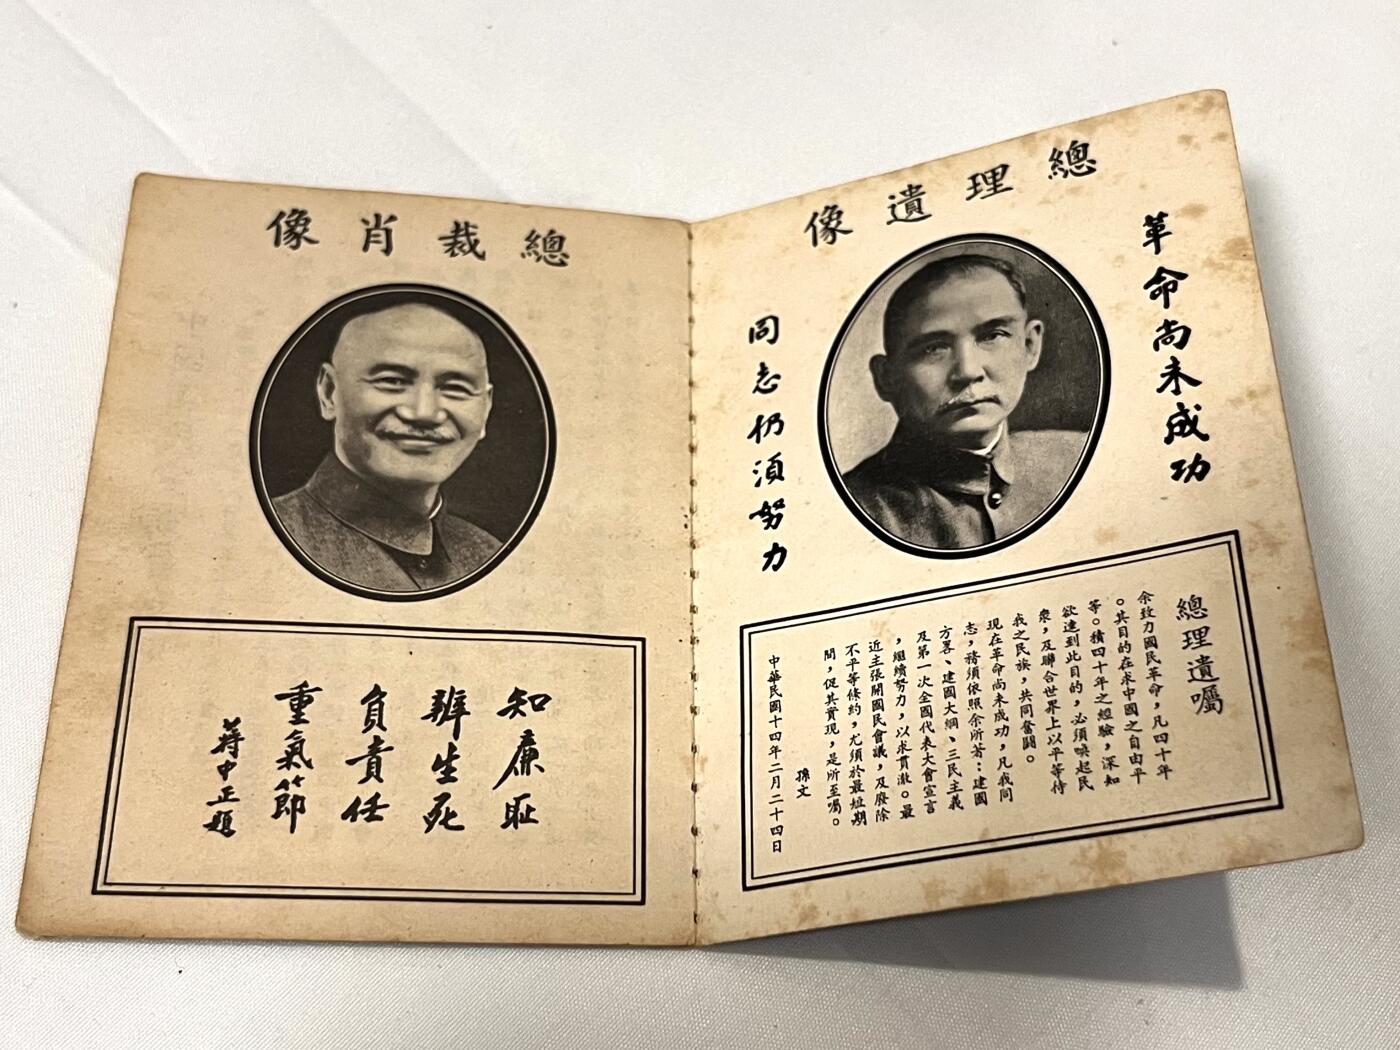 總理遺像
革命尚未成功
同志仍須努力
總理遺囑
余致力國民革命，凡四十年
。其目的在求中國之自由平
等。積四十年之經驗，深知
欲達到此目的，必須喚起民
衆，及聯合世界上以平等待
我之民族，共同奮鬪。
現在革命尚未成功，凡我同
志，務須依照余所著：建國
方畧、建國大綱、三民主義
及第一次全國代表大會宣言
，繼續努力，以求貫澈。最
近主張開國民會議，及廢除
不平等條約，尤須於最短期
間，促其實現，是所至囑。
孫文
中華民國十四年二月二十四日
總裁肖像
知廉耻
辨生死
負責任
重氣節
蔣中正題